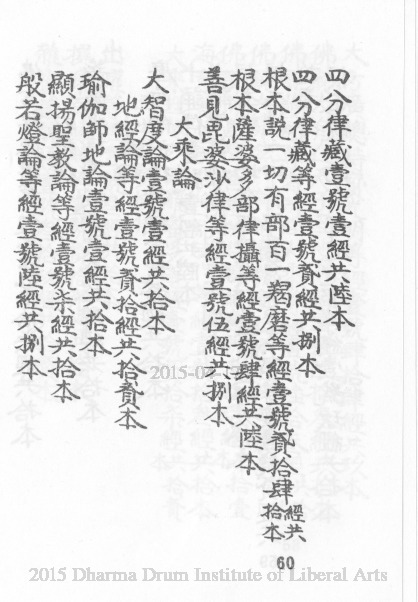 四分律藏壹號壹經共陸本
四分律藏等經壹號貳經共捌本
根本說一切有部百一羯磨等經壹號貳拾肆經共拾本
根本薩婆多部律攝等經壹號肆經共陸本
善見毘婆沙律等經壹號伍經共捌本
大乘論
大智度論壹號壹經共拾本
地經論等經壹號貳拾經共拾貳本
瑜伽師地論壹號壹經共拾本
顯揚聖教論等經壹號柒經共拾本
般若燈論等經壹號陸經共捌本
60
2015 Dharma Drum Institute of Liberal Arts